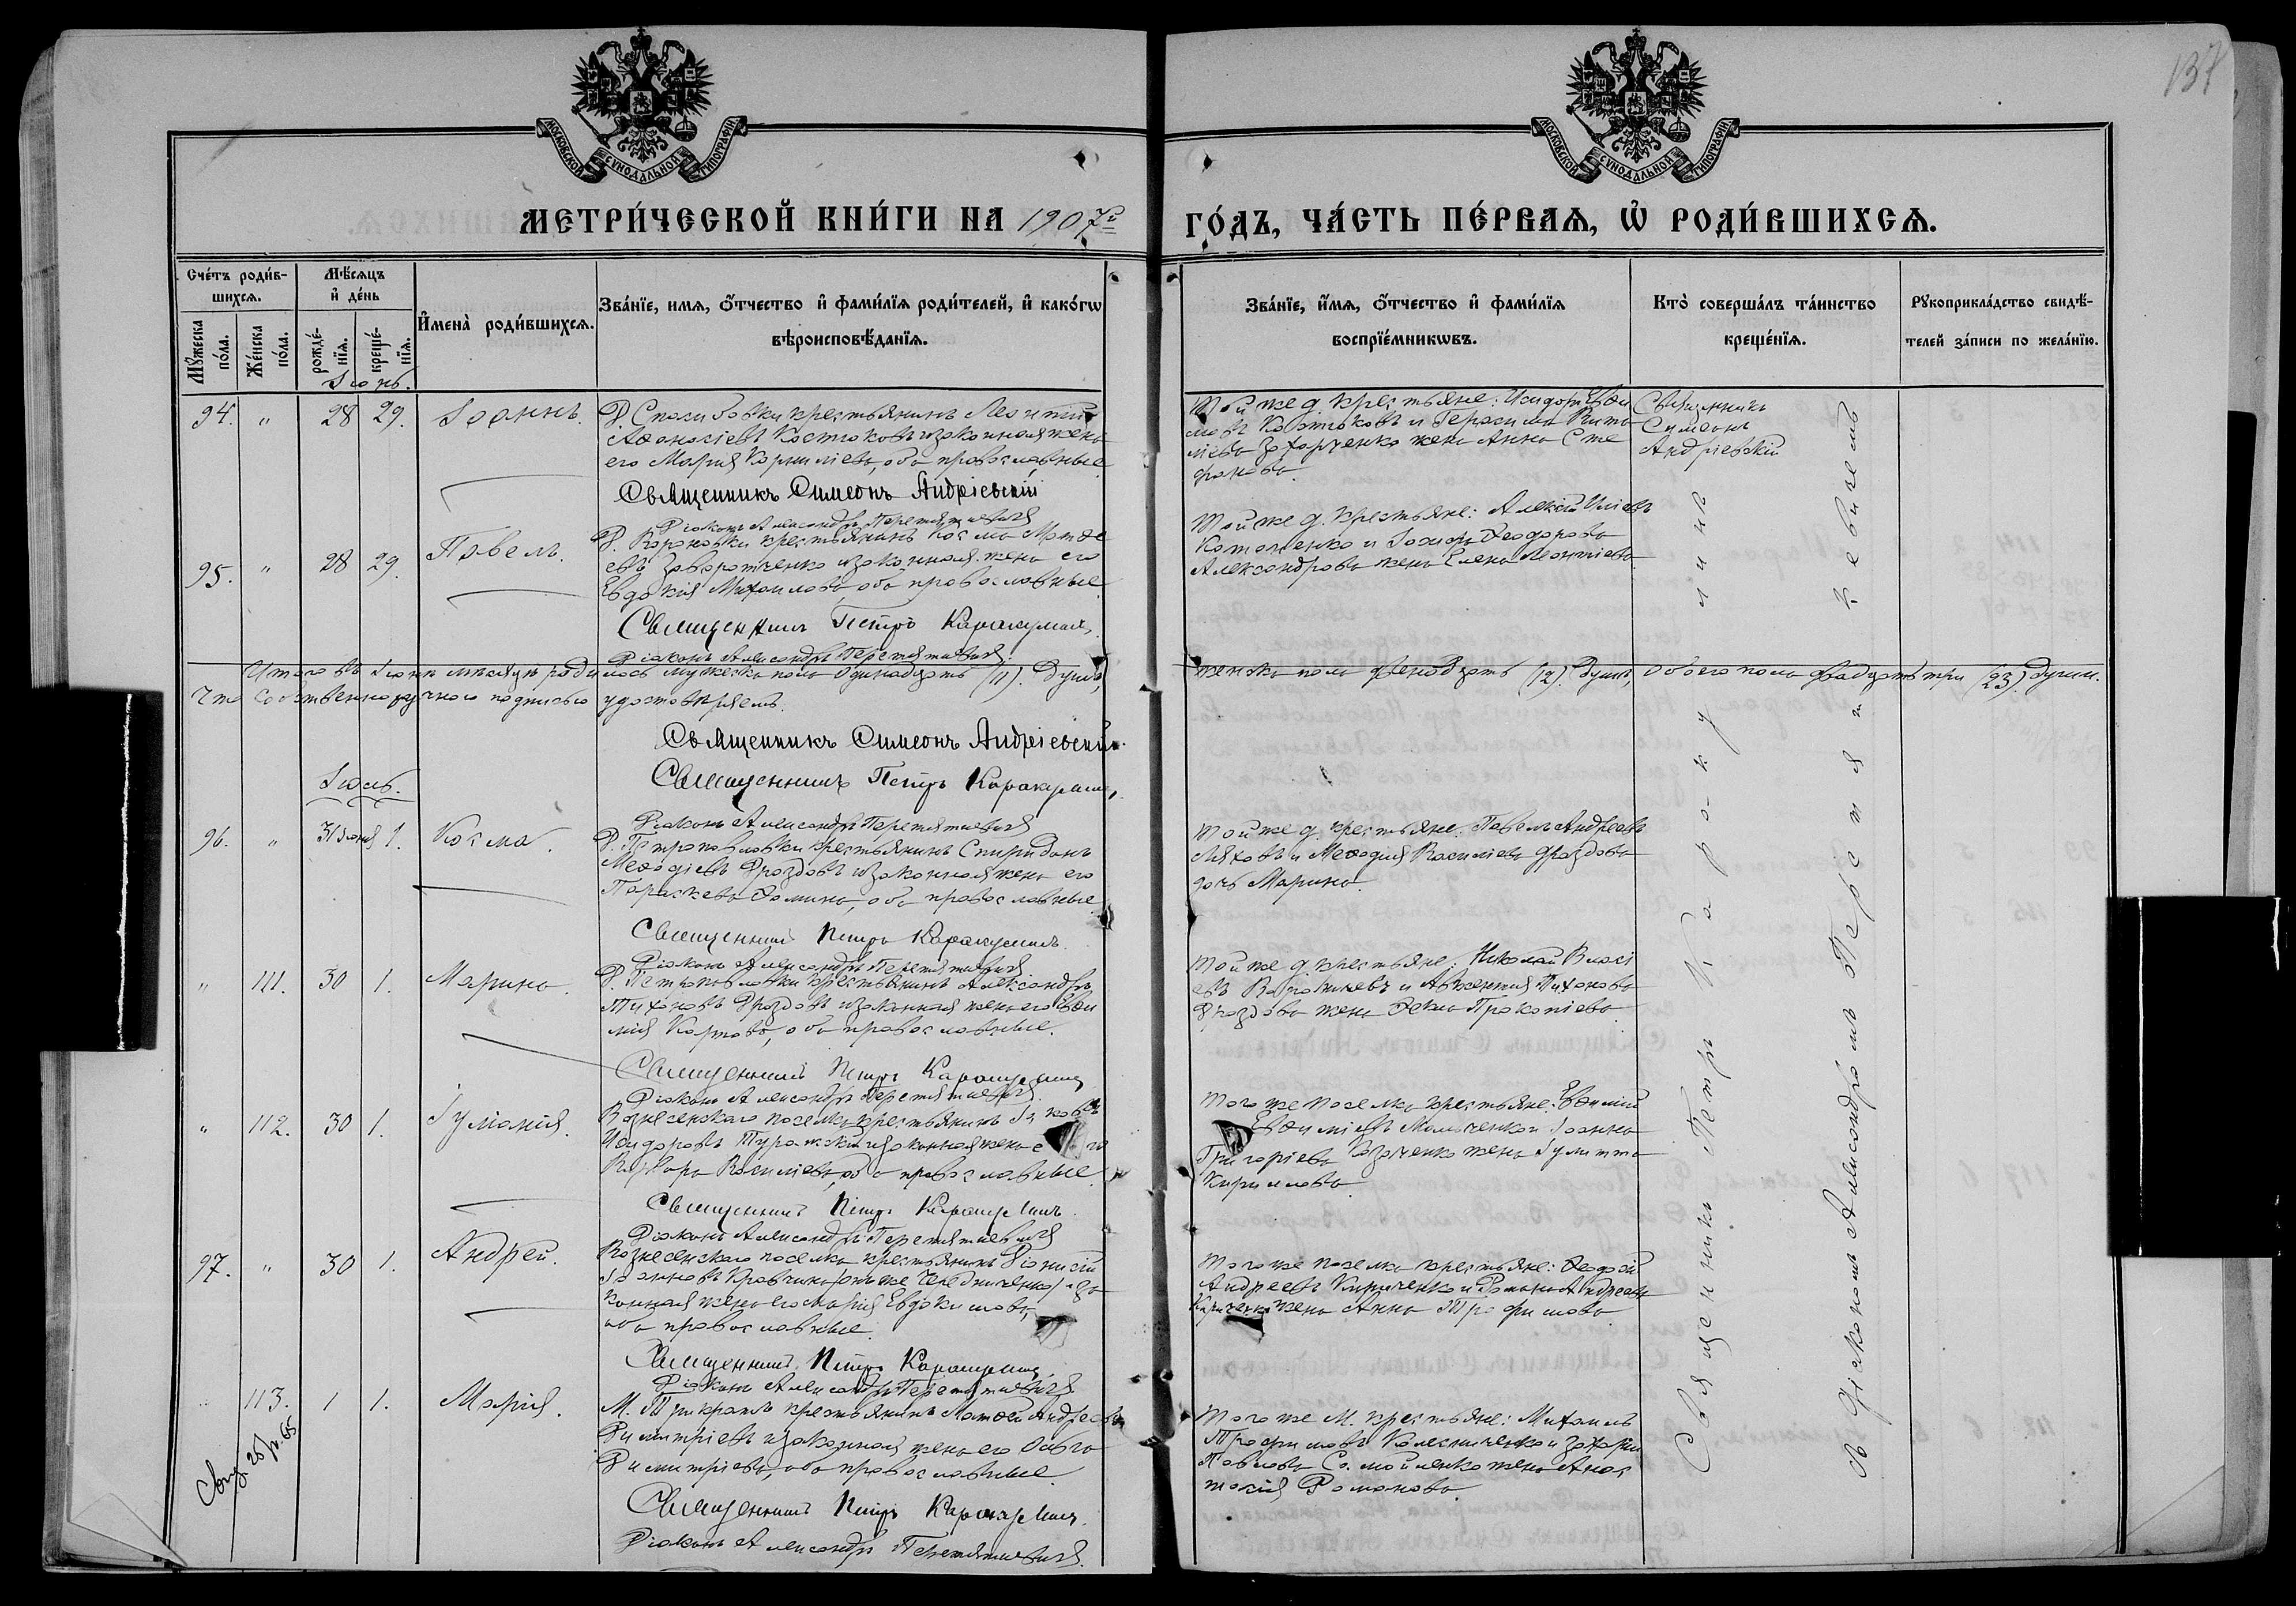 137
МОСКОВСКОЙ СѴНОДАЛЬНОЙ ТИПОГРАФІИ
МОСКОВСКОЙ СѴНОДАЛЬНОЙ ТИПОГРАФІИ
МЕТРИ́ЧЕСКОЙ КНИ́ГИ НА 1907й
ГО́ДЪ, ЧА́СТЬ ПЕ́РВАѦ, Ѡ҆ РОДИ́ВШИХСѦ.
Сче́тъ роди́в-
шихсѧ.
Мѹ́жеска по́ла.
Же́нска по́ла.
Мѣ́сѧцъ
и҆ де́нь
рожде́-нїѧ.
креще́-нїѧ.
И҆мена̀ роди́вшихсѧ.
Зва́нїе, имѧ, ѻ҆́тчество и҆ фами́лїѧ роди́телей, и҆ како́гѡ
вѣроисповѣ́данїѧ.
Зва́нїе, и҆́мѧ, ѻ҆́тчество и҆ фами́лїѧ
воспрїе́мникѡвъ.
Кто̀ соверша́лъ та́инство
креще́нїѧ.
Рѹкоприкла́дство свидѣ́-
телей за́писи по жела́нїю.
Іюнь.
94. " 28 29. Іоаннъ.
Д. Споси бовки крестьянинъ Леонтій
Аѳанасіевъ Костюковъ и законная жена
его Марія Корниліева, оба православные
Священникъ Симеонъ Андріевскій
Діаконъ Александръ Перетяткевичъ
Той же д. крестьяне: Исидоръ Евѳи
мовъ Костюковъ и Герасима Вита
ліева Захарченко жена Анна Сте
фанова.
Священникъ
Симеонъ
Андріевскій
95. " 28 29. Павелъ.
Д. Вороновки крестьянинъ Косма Матѳе
евъ Заворотченко и законная жена его
Евдокія Михаилова, оба православные
Священникъ Петръ Каракулинъ
Діаконъ Александръ Перетяткевичъ
Той же д. крестьяне: Алексій Иліевъ
и Ѳеодорова
Александрова жена Елена Леонтіева
Итого въ Іюнѣ мѣсяцѣ родилось мужеска пола одинадцать (11). душъ,
женска пола двенадцать (12). душъ, обоего пола двадцать три (23). души.
Что собственноручною подписью удостовѣряемъ.
Священникъ Симеонъ Андріевскій
Священникъ Петръ Каракулинъ
Діаконъ Александръ Перетяткевичъ
Іюль.
96. " 31 Іюня 1. Косма.
Д. Петропавловки крестьянинъ Спиридонъ
Меѳодіевъ Дроздовъ и законная жена его
Параскева Ѳомина, оба православные
Священникъ Петръ Каракулинъ
Діаконъ Александръ Перетяткевичъ
Той же д. крестьяне: Павелъ Андреевъ
Ляховъ и Меѳодія Василіева Дроздова
дочь Марина.
" 111. 30 1. Марина.
Д. Петропавловки крестьянинъ Александръ
Тихоновъ Дроздовъ и законная жена его Евѳи
мія Карпова, оба православные.
Священникъ Петръ Каракулинъ
Діаконъ Александръ Перетяткевичъ
Той же д. крестьяне: Николай Власі
евъ и Авксентія Тихонова
Дроздова жена Ѳекла Прокопіева
" 112. 30 1. Іуліанія.
Вознесенскаго поселка крестьянинъ Іаковъ
Исидоровъ и законная жена его
Варвара Василіева, оба православные
Священникъ Петръ Каракулинъ
Діаконъ Александръ Перетяткевичъ
Того же поселка крестьяне: Евѳимій
Евѳиміевъ и Іоанна
Григоріева Козаченко жена Іулитта
Кириллова
97. " 30 1. Андрей.
Вознесенскаго поселка крестьянинъ Діонисій
Іоанновъ Кравчина (онъ же Чередниченко) и за
конная жена его Марія Евдокимова,
оба православные.
Священникъ Петръ Каракулинъ
Діаконъ Александръ Перетяткевичъ
Того же поселка крестьяне: Ѳеодосій
Андреевъ Кириченко и Романа Андреева
Кириченка жена Анна Трофимова
113. 1 1. Марія.
М. Трикратъ крестьянинъ Матѳей Андреевъ
Димитріевъ и законная жена его Ольга
Димитріева, оба православные
Священникъ Петръ Каракулинъ
Діаконъ Александръ Перетяткевичъ
Того же М. крестьяне: Михаилъ
Трофимовъ Колесниченко и Захарія
Павлова Самойленко жена Анас
тасія Романова
Священникъ Петръ Каракулинъ
съ діакономъ Александромъ Перетяткевичемъ